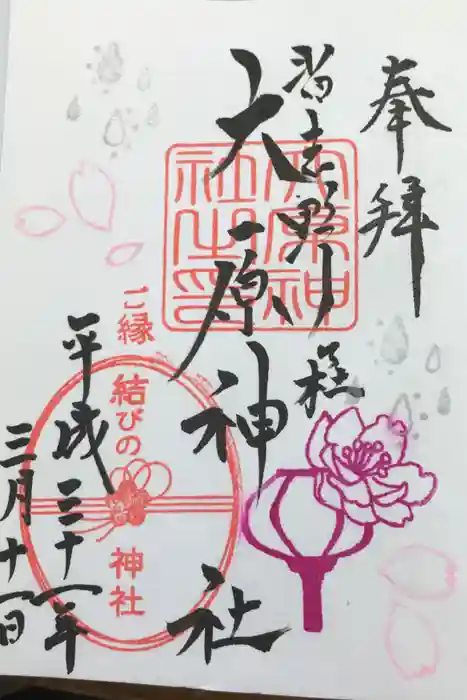 奉拝
習志野
大原神社
大原神
社之印
ご縁
結びの
神社
平成三十一年
三月十一日